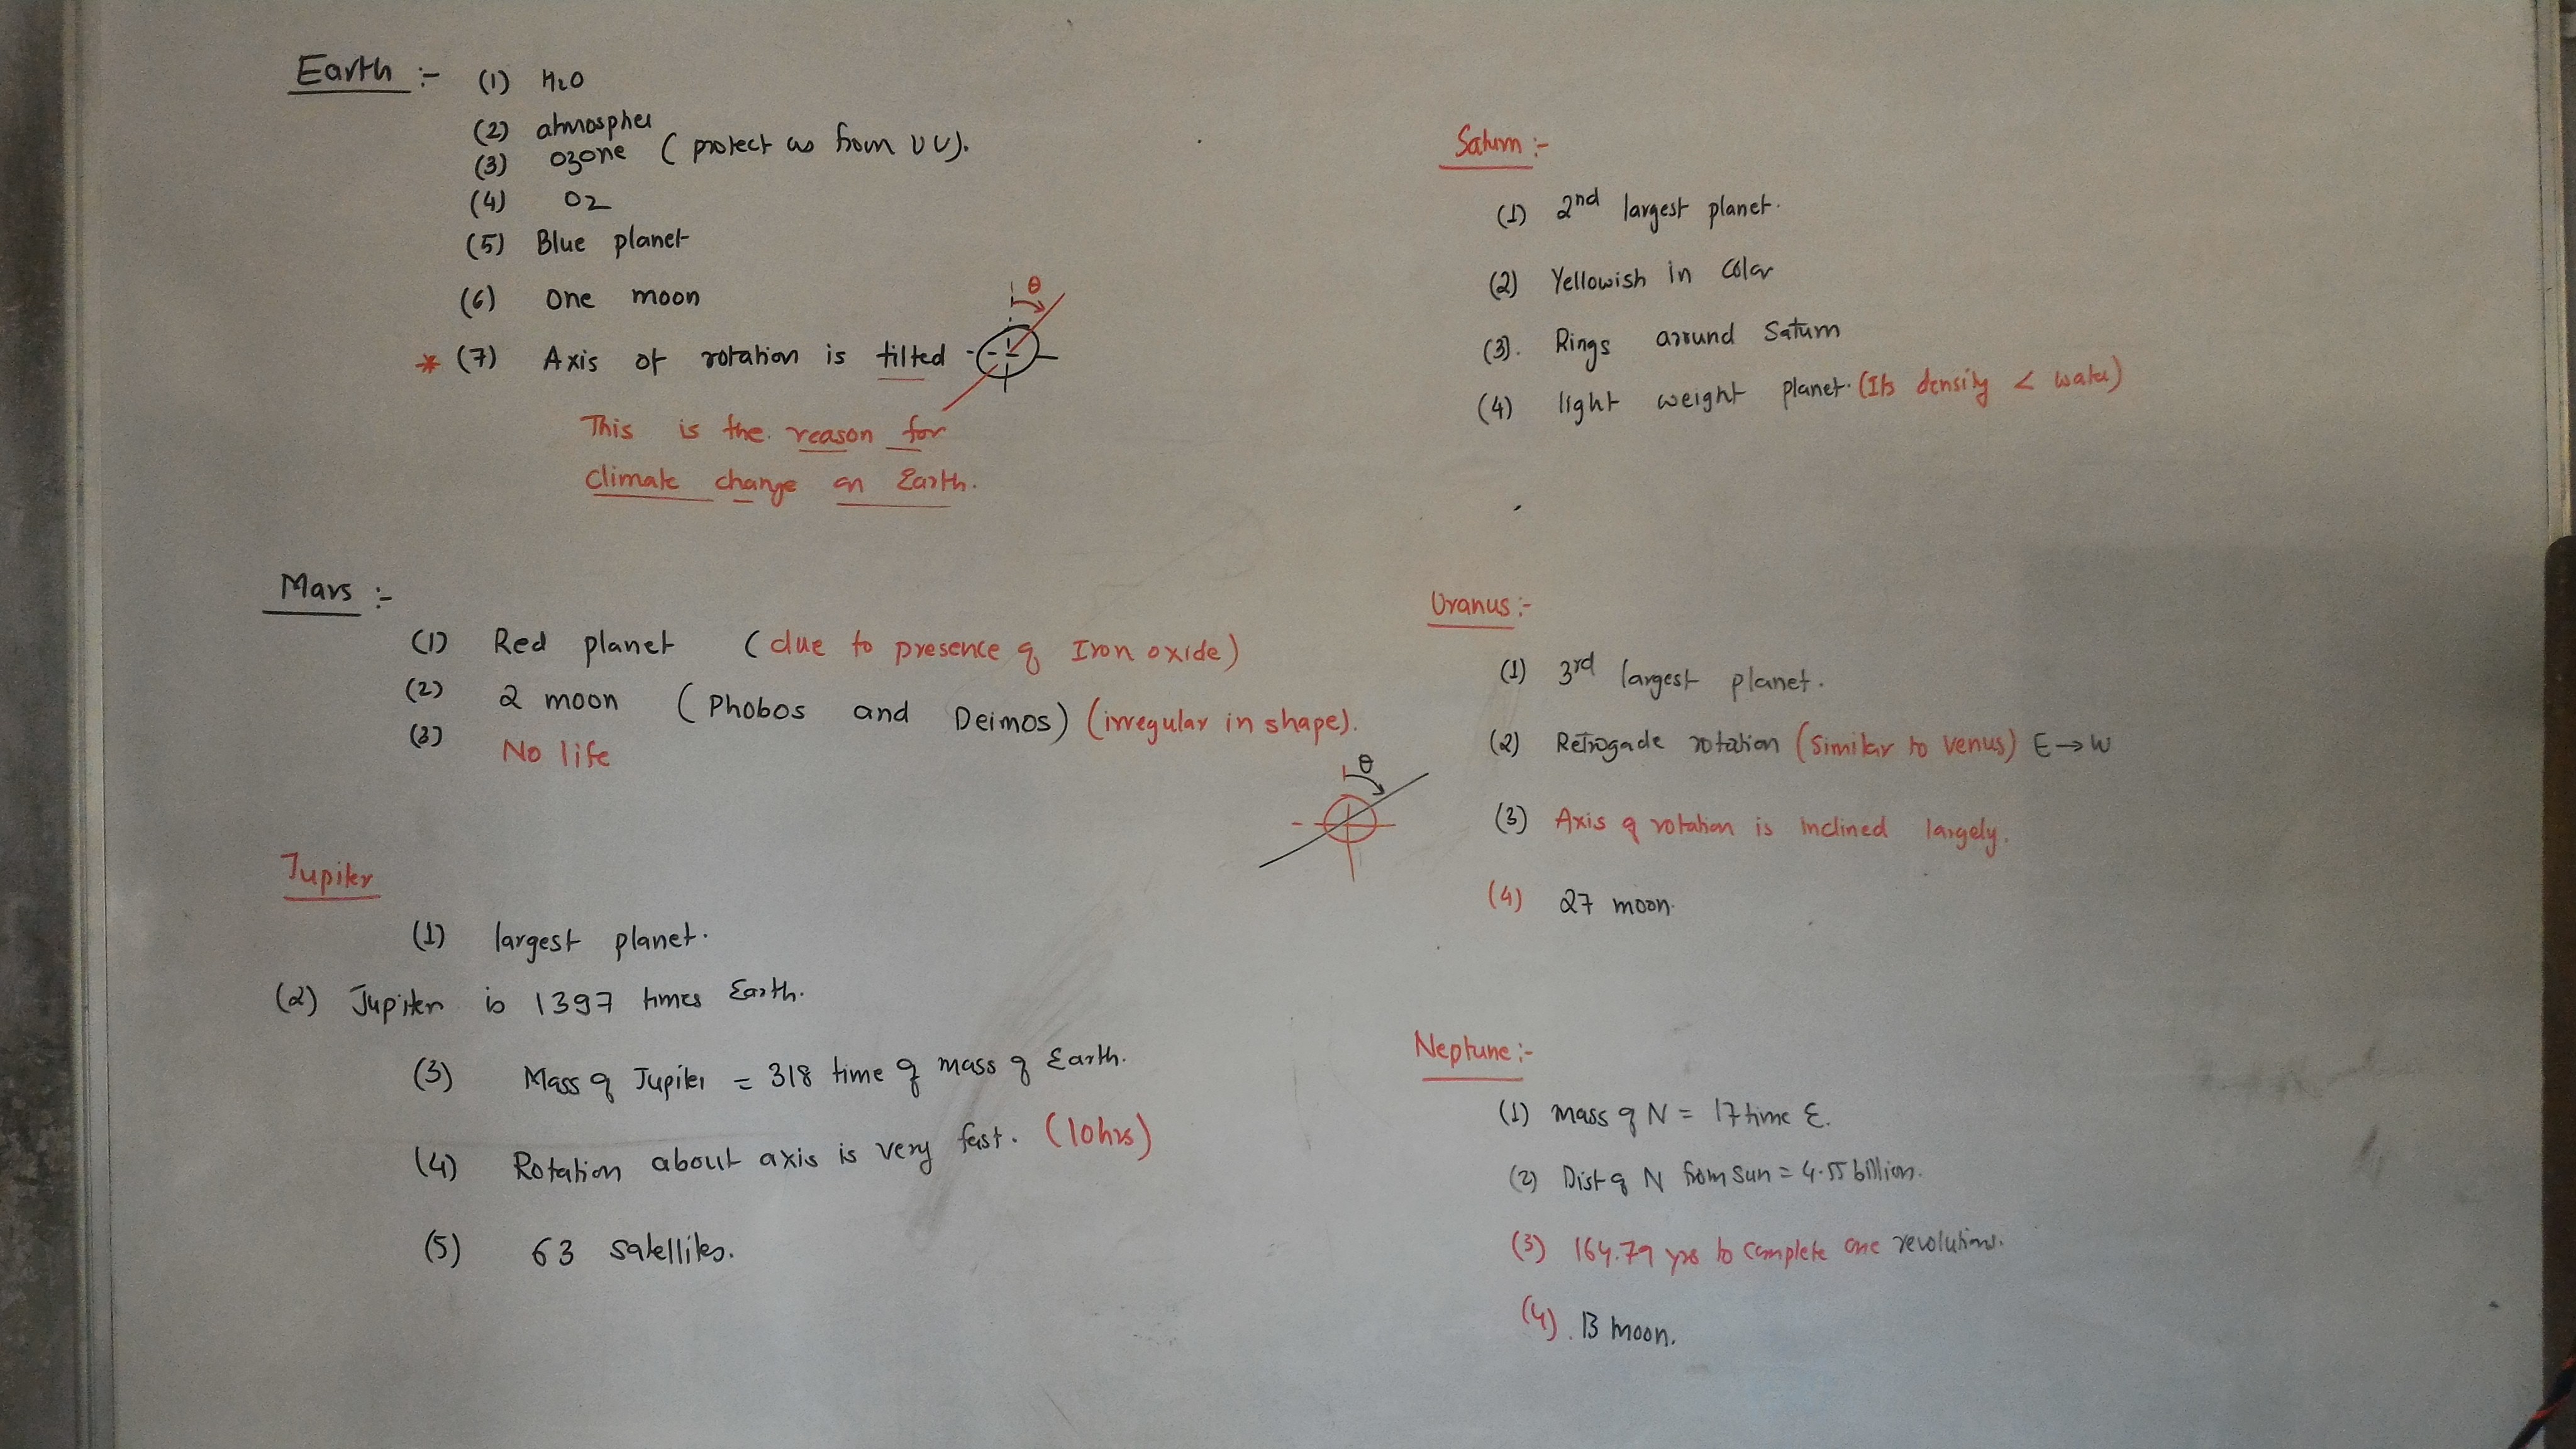 Earth :- (1) H2O
(2) atmospher
(3) ozone ( protect us from UV).
(4) O2
(5) Blue planet
(6) one moon
* (7) Axis of rotation is tilted
θ
This is the reason for
climate change on Earth.
Mars :-
(1) Red planet (due to presence of Iron oxide)
(2) 2 moon (Phobos and Deimos) (irregular in shape).
(3) No life
Jupiter
(1) largest planet.
(2) Jupiter is 1397 times Earth.
(3) Mass of Jupiter = 318 time of mass of Earth.
(4) Rotation about axis is very fast. (10hrs)
(5) 63 satellites.
Saturn :-
(1) 2nd largest planet.
(2) Yellowish in color
(3). Rings around Saturn
(4) light weight planet. (Its density < water)
Uranus :-
(1) 3rd largest planet.
(2) Retrogade rotation (similar to venus) E → W
θ
(3) Axis of rotation is inclined largely.
(4) 27 moon.
Neptune :-
(1) mass of N = 17 time E.
(2) Dist of N from sun = 4.55 billion.
(3) 164.79 yrs to complete one revolutions.
(4). 13 moon.